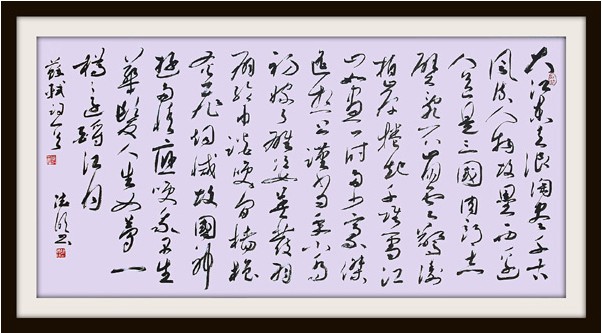 大江东去浪淘尽千古
风流人物故垒西边
人道是三國周郎赤
壁乱石崩雲驚濤
拍岸捲起千堆雪江
山如畫一时多少豪傑
遥想公瑾当年小乔
初嫁了雄姿英發羽
扇纶巾談笑间樯橹
灰飞烟滅故國神
遊多情應笑我早生
華髮人生如夢一
樽还酹江月
蘇軾词一首